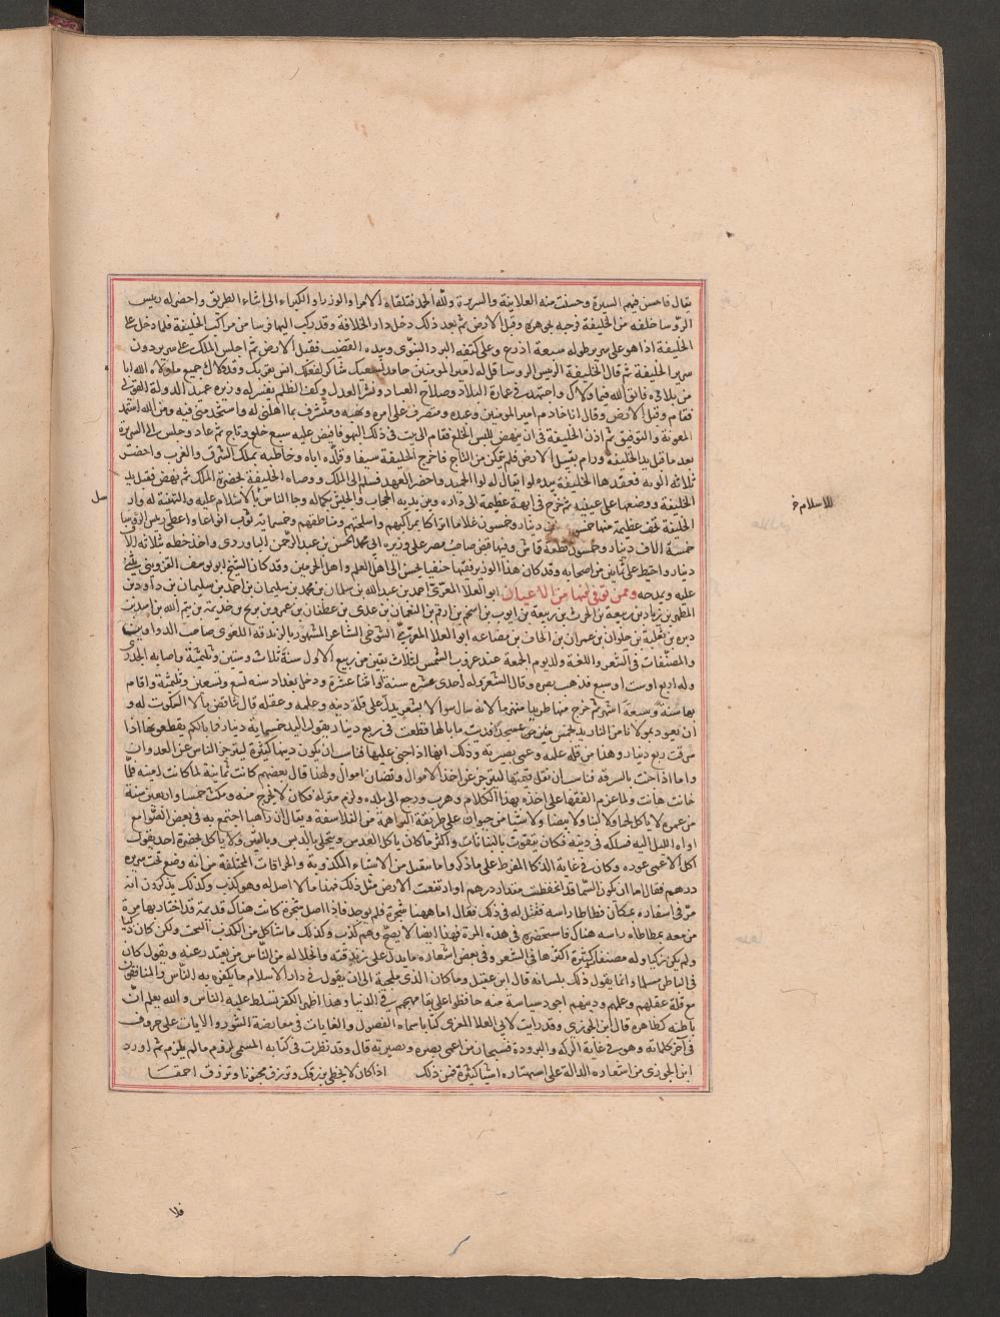 يقال فاحسن فيهم السيرة وحسنت منه العلانية والسريرة ولله الحمد فتلقاه الامرا والوزرا والكبراء الى اثناء الطريق واحضر له رييس
الروسا خلعة من الخليفة فرجيه مجوهرة وقبل الارض ثم بعد ذلك دخل دار الخلافة وقد ركب اليها فرسا من مراكب الخليفة فلما دخل على
الخليفة اذا هو على سرير طوله سبعة اذرع وعلى كتفه البرد النبوى وبيده القضيب فقبل الارض ثم اجلس الملك على سرير دون
سرير الخليفة ثم قال الخليفة لرييس الروسا قل له امير المومنين حامد لسعيك شاكر لفعلك انس بقربك وقد ولاك جميع ما ولاه الله اياه
من بلاده فاتق الله فيما ولاك واجتهد فى عمارة البلاد وصلاح العباد ونشر العدل وكف الظلم ففسر له وزيره عميد الدولة القول
فقام وقبل الارض وقال انا خادم امير المومنين وعبده ومتصرف على امره ونهيه ومتشرف بما اهلنى له واستخدمنى فيه ومن الله استمد
المعونة والتوفيق ثم اذن الخليفة فى ان ينهض للبس الخلع فقام الى بيت فى ذلك البهو فافيض عليه سبع خلع وتاج ثم عاد وجلس على السرير
بعد ما قبل يد الخليفة ورام تقبيل الارض فلم يتمكن من التاج فاخرج الخليفة سيفا وقلده اياه وخاطبه بملك الشرق والغرب واحضرت
ثلاثة الويه فعقدها الخليفة بيده لوا يقال له لوا الحميد واحضر العهد فسلم الى الملك ووصاه الخليفة بحضرة الملك ثم نهض فقبل يد
الخليفة ووضعها على عينيه ثم خرج فى ابهة عظيمة الى داره وبين يديه الحجاب والجيش بكماله وجا الناس بالاسلام عليه والتهنية له وارسل
للاسلام خ
الخليفة تحف عظيمة منها خمسين دينار وخمسون غلاما اتراكا بمراكبهم واسلحتهم ومناطقهم وخمسماية ثوب انواعا واعطى رييس الروسا
خمسة الاف دينار وخمسون قطعة قماش وفيها قبض صاحب مصر على وزيره ابى محمد الحسن بن عبد الرحمن الياوردى واخذ خطه بثلاثة الاف
دينار واحتيط على ثمانين من اصحابه وقد كان هذا الوزير فقيها حنفيا يحسن الى اهل العلم واهل الحرمين وقد كان الشيخ ابو يوسف القزوينى يثنى
عليه ويمدحه وممن توفى فيها من الاعيان ابو العلا المعرى احمد بن عبد الله بن سلمان بن محمد بن سليمان بن احمد بن سليمان بن داود بن
المطهر بن زياد بن ربيعة بن الحرث بن ربيعة بن ايوب بن اسحم بن ارقم بن النعمان بن عدى بن غطفان بن عمرو بن بريح وخذيمة بن تيم الله بن اسد بن
دبره بن تغلبة بن حلوان بن عمران بن الحاف بن قضاعه ابو العلا المعرى التنوخى الشاعر المشهور بالزندقة اللغوى صاحب الدواوين
والمصنفات فى الشعر واللغة ولد يوم الجمعة عند غروب الشمس لثلاث بقين من ربيع الاول سنة ثلاث وستين وثلثمية واصابه الجدرى
وله اربع اوست او سبع فذهب بصره وقال الشعر وله احدى عشره سنة او اثنا عشرة ودخل بغداد سنه تسع وتسعين وثلثمية واقام
بها سنة وسبعة اشهر ثم خرج منها طريدا منهزما لانه سال سوالا بشعر يدل على قلة دينه وعلمه وعقله قال تناقض ما لنا الا السكوت له و
ان نعوذ بمولانا من النار يد بخمس مئين من عسجد فديت ما بالها قطعت فى ربع دينار يقول اليد خمسماية دينار فما بالكم بقطعونها اذا
سرقت ربع دينار وهذا من قله علمه وعمى بصيرته وذلك انها اذا جنى عليها فناسب ان يكون ديتها كثيرة لينزجر الناس عن العدوان
واما اذا جنت بالسرقه فناسب ان تقل قيمتها لينزجر عن اخذ الاموال وتصان اموال ولهذا قال بعضهم كانت ثمينة لما كانت امينه فلما
خانت هانت ولما عزم الفقها على اخذه بهذا الكلام وهرب ورجع الى بلده ولزم منزله فكان لا يخرج منه ومكث خمسا واربعين سنة
من عمره لا ياكل لحما ولا لبنا ولا بيضا ولا شيا من حيوان على طريقة البراهمة من الفلاسفة ويقال ان راهبا اجتمع به فى بعض الصوامع
اواه الليل اليه فشككه فى دينه فكان يتقوت بالنباتات واكثر ما كان ياكل العدس ويتحلى بالدبس وبالتين ولا ياكل بحضرة احد يقول
اكل الاعمى عوره وكان فى غاية الذكا المفرط على ما ذكر واما ما ينقل من الاشياء المكذوبة والخرافات المختلفة من انه وضع تحت سريره
درهم فقال اما ان يكون السما قد انخفضت مقدار درهم او ارتفعت الارض مثل ذلك فهذا ما لا اصل له وهو كذب وكذلك يذكرون انه
مر فى اسفاره بمكان فطاطا راسه فقيل له فى ذلك فقال اما ههنا شجرة فلم يوجد فاذا اصل شجرة كانت هناك قديمة قد اختار بها مرة
من معه بمطاطاه راسه هناك فاستحضره فى هذه المرة فهذا ايضا لا يصح وهم كذب وكذلك ما شاكل من الكذب البحت ولكن كان ذكيا
ولم يكن زكيا وله مصنفات كثيرة اكثرها فى الشعر وفى بعض اشعاره ما يدل على زندقته وانحلاله من الناس من يعتذر عنه ويقول كان
فى الباطن مسلما وانما يقول ذلك بلسانه قال ابن عقيل وما كان الذى يلجية الى ان يقول فى دار الاسلام ما يكفره به الناس والمنافقون
مع قلة عقلهم وعلمهم ودينهم اجود سياسة منه حافظوا على بقا مهجهم فى الدنيا وهذا اظهر الكفر بتسلط عليه الناس والله يعلم ان
باطنه كظاهره قال ابن الجوزى وقد رايت لابى العلا المعرى كتابا سماه الفصول والغايات فى معارضة السور والايات على حروف
فى آخر كلماته وهو فى غاية الركة والبرودة فسبحان من اعمى بصره وبصيرته قال وقد نظرت فى كتابه المسمى لزوم ما لم يلزم ثم اورد
ابن الجوزى من اشعاره الدالة على استهتاره اشيا كثيرة فمن ذلك اذا كان لا يحظى برزقك وترزق مجنونا وترزق احمقا
فلا